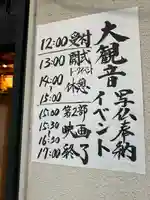 大観音写仏奉納
イベント
12:00 受付
13:00 開式
トークイベント
14:00 休憩
15:00
15:00 第2部
15:30 映画
16:30
17:00 終了